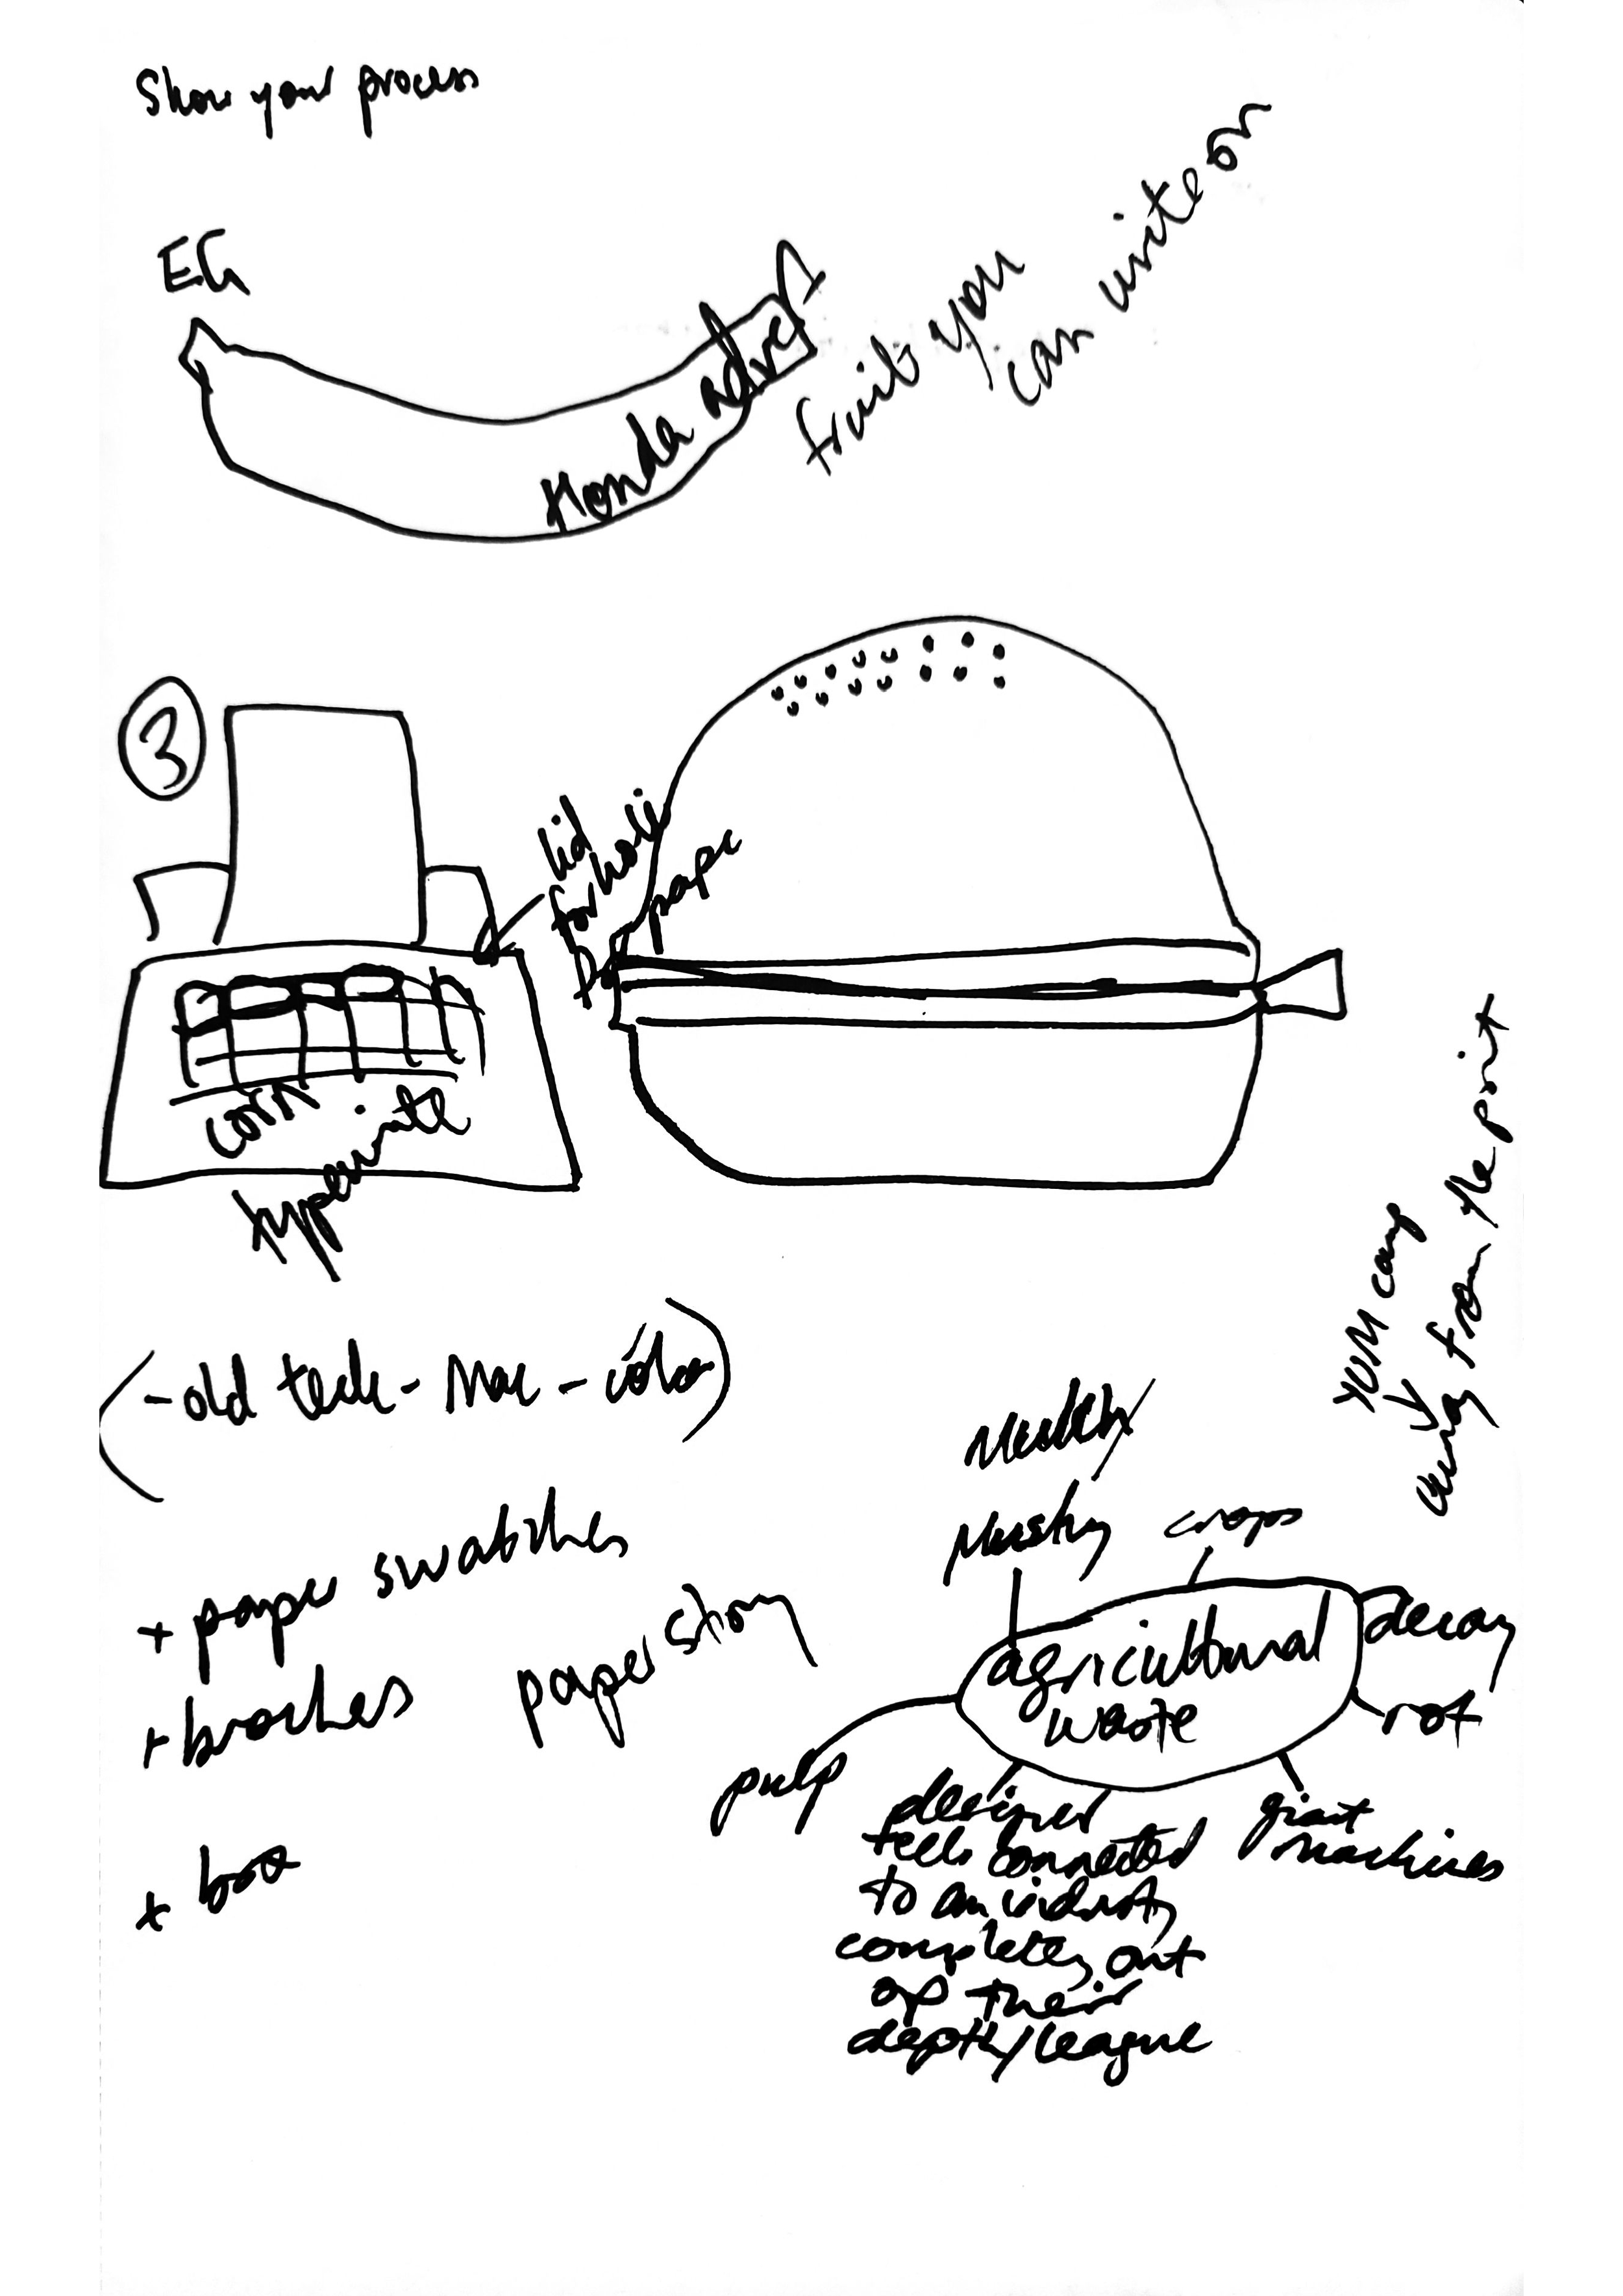 Show your process
EG
Honda advert
fruits you
can write on
3
lid
for hole
paper
corn
typewrite
(-old tech - Mac - color)
away from the point
+ paper swatches
+ broches
paper story
+ box
Mushy
crops
agricultural
waste
decay
rot
pulp
giant
machines
designer
feels connected
to an industry
completely out
of their
depth/league